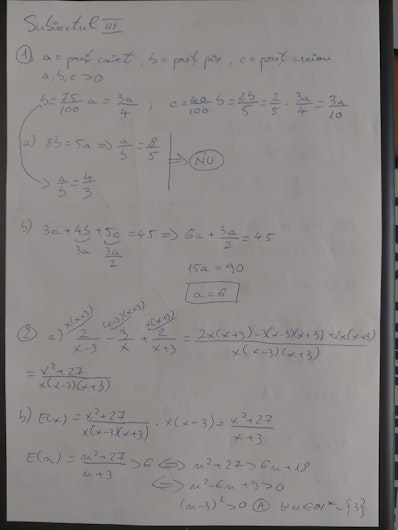 Subiectul III
① a = preț caiet, b = preț pix, c = preț creion
a, b, c > 0
b = 75/100 a = 3a/4 ; c = 40/100 b = 2b/5 = 2/5 · 3a/4 = 3a/10
a) 8b = 5a => a/b = 8/5 => NU
-> a/b = 4/3
b) 3a + 4b + 5c = 45 => 6a + 3a/2 = 45
3a 3a/2
15a = 90
a = 6
② a) x(x+3) (x-3)(x+3) x(x+3)
2/(x-3) - 3/x + 2/(x+3) = (2x(x+3) - 3(x-3)(x+3) + 2x(x+3))/(x(x-3)(x+3))
= (x²+27)/(x(x-3)(x+3))
b) E(x) = (x²+27)/(x(x-3)(x+3)) · x(x-3) = (x²+27)/(x+3)
E(n) = (n²+27)/(n+3) > 6 <=> n²+27 > 6n+18
<=> n²-6n+9 > 0
(n-3)² > 0 Ⓐ ∀ n ∈ ℕ* - {3}